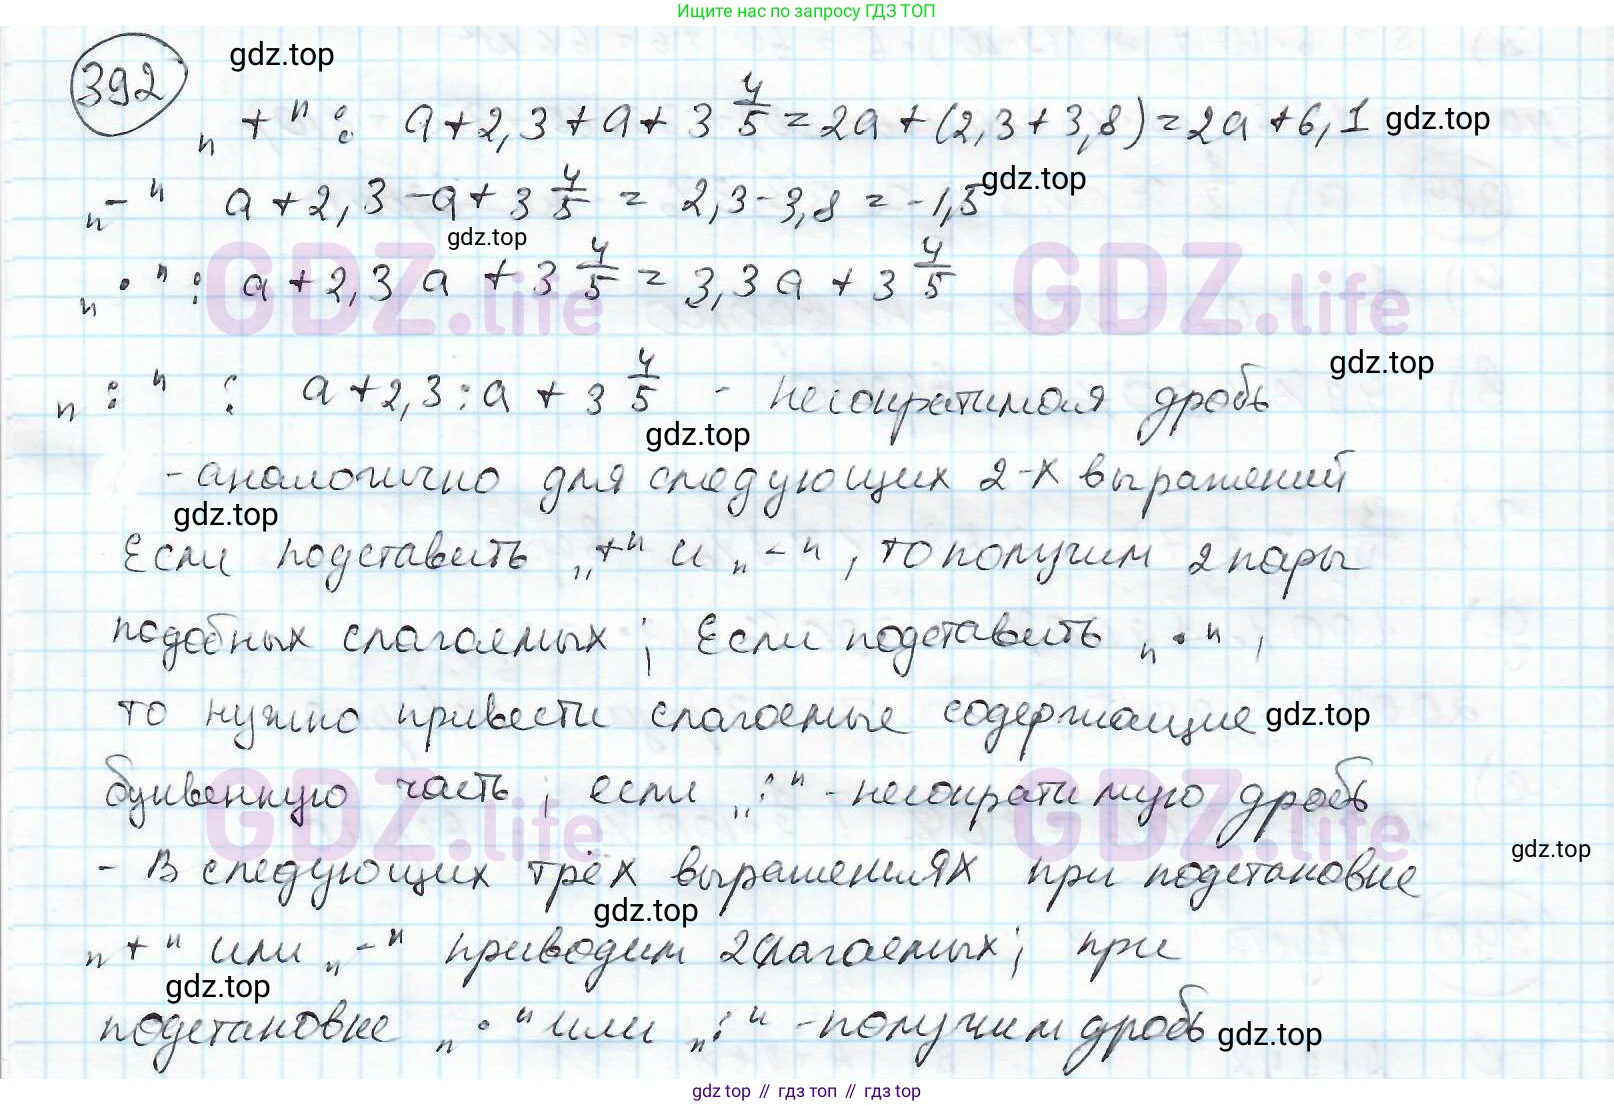 Ищите нас по запросу ГДЗ ТОП
392 gdz.top
„+“: a+2,3+a+3 4/5=2a+(2,3+3,8)=2a+6,1 gdz.top
„-“ a+2,3-a+3 4/5 = 2,3-3,8=-1,5 gdz.top
gdz.top
„·“: a+2,3a+3 4/5=3,3a+3 4/5
GDZ.life GDZ.life
gdz.top
„:“: a+2,3:a+3 4/5 - несократимая дробь
gdz.top
-аналогично для следующих 2-х выражений
gdz.top
Если подставить „+“ и „-“, то получим 2 пары
подобных слагаемых; Если подставить „·“,
то нужно привести слагаемые содержащие gdz.top
буквенную часть, если „:“ -несократимую дробь
GDZ.life GDZ.life
gdz.top
- В следующих трёх выражениях при подстановке
gdz.top
„+“ или „-“ приводим 2 слагаемых; при
gdz.top
подстановке „·“ или „:“ -получим дробь gdz.top
gdz top // гдз топ // гдз top